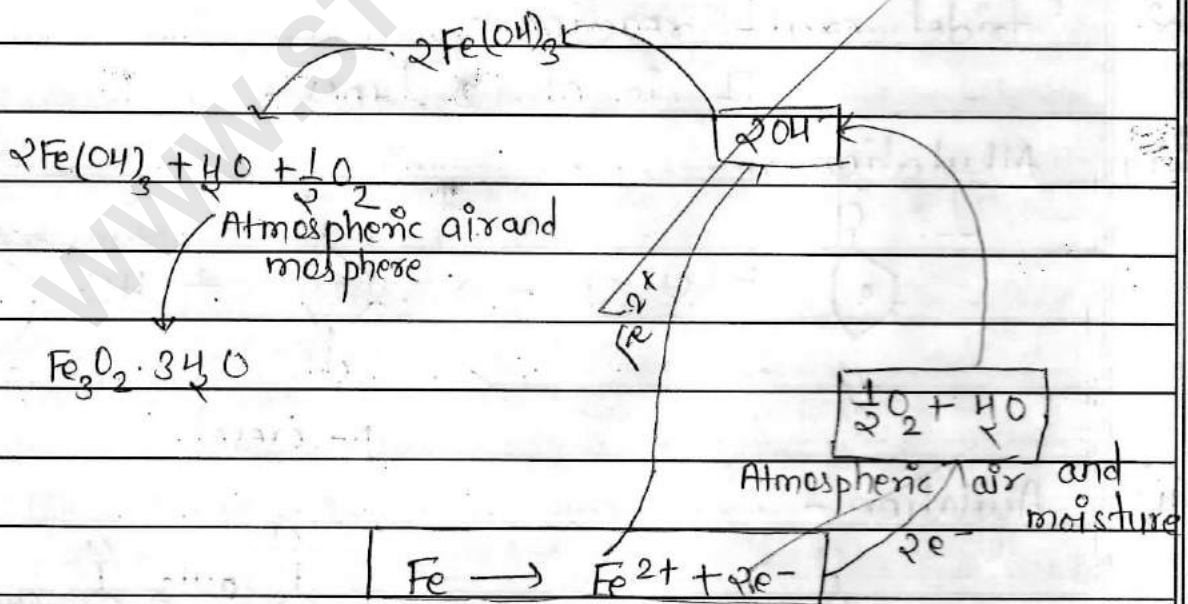 2Fe(OH)3
2OH
2Fe(OH)3 + H2O + 1/2 O2
Atmospheric air and
mosphere.
Fe3O2 · 3H2O
1/2 O2 + H2O
Atmospheric air and
moisture
2e-
Fe → Fe2+ + 2e-
www.ST